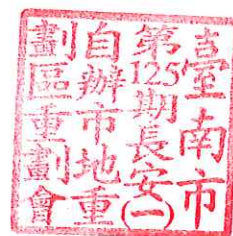 臺南市
第125期長安(一)
自辦市地重
劃區重劃會